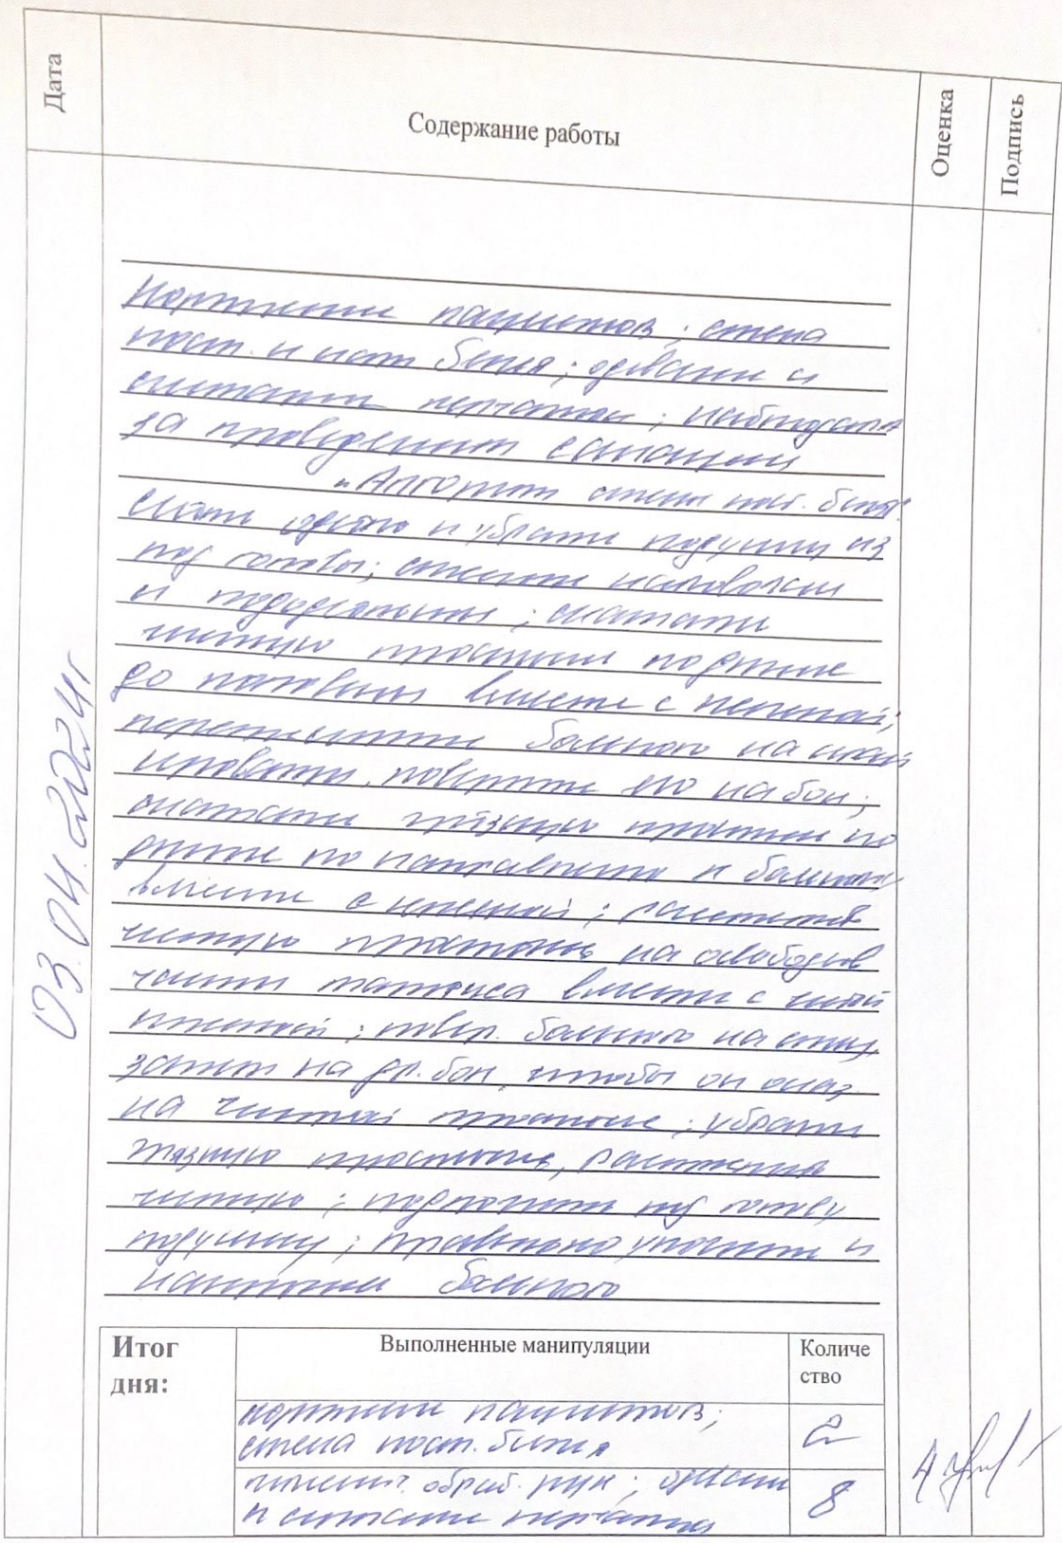 Дата
Содержание работы
Оценка
Подпись
03.04.2024г
Кормление пациентов; смена
пост. и нат. белья; одевание и
снятие перчаток; наблюдать
за проведением санации
"Алгоритм смены пост. белья"
и убрать подушку из
под головы; сменить наволочки
и ; скатать
чистую простыню по длине
до половины вместе с пеленкой;
переместить больного на край
кровати, повернуть его на бок;
скатать грязную простыню по
длине по направлению к больному
вместе с клеенкой; расстелить
чистую простынь на свободной
части матраса вместе с чистой
; повер. больного на спину,
затем на др. бок, чтобы он оказ
на чистой простыне; убрать
грязную простынь, расстелить
чистую; подложить под голову
подушку; правильно уложить и
больного
Итог
дня:
Выполненные манипуляции
Количе
ство
кормление пациентов;
смена пост. белья
2
гигиенич. обраб. рук; одевание
и снятие перчаток
8
4